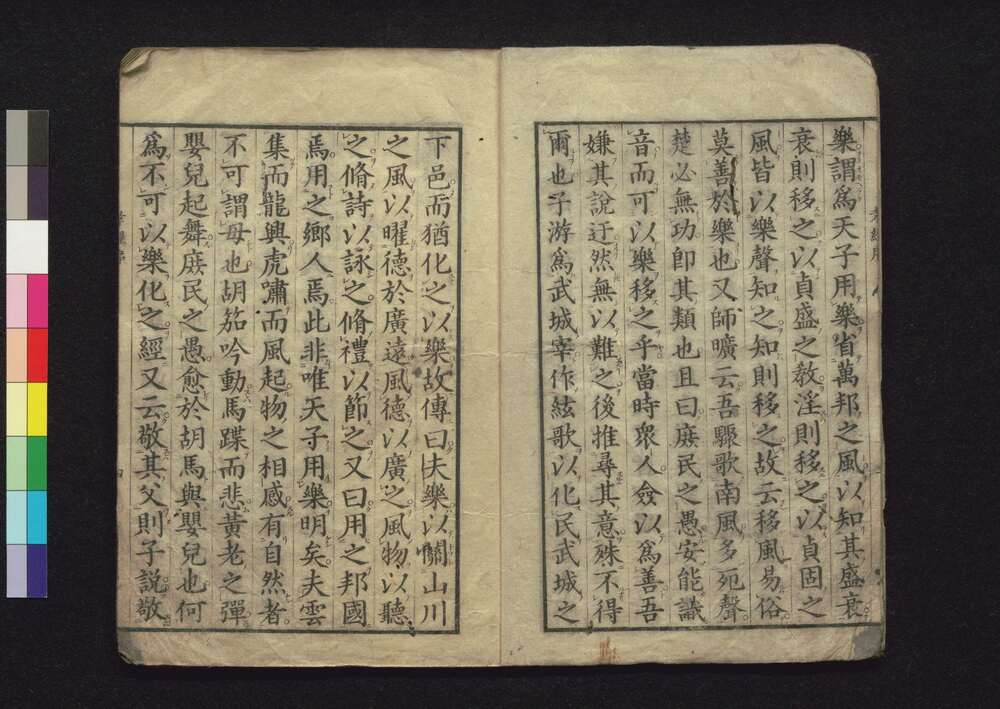 樂謂爲天子用樂省萬邦之風以知其盛衰
衰則移之以貞盛之敎淫則移之以貞固之
風皆以樂聲知之知則移之故云移風易俗
莫善於樂也又師曠云吾驟歌南風多死聲
楚必無功卽其類也且曰庻民之愚安能識
音而可以樂移之乎當時衆人僉以爲善吾
嫌其說迂然無以難之後推尋其意殊不得
爾也子游爲武城宰作絃歌以化民武城之
下邑而猶化之以樂故傳曰夫樂以關山川
之風以曜德於廣遠風德以廣之風物以聽
之脩詩以詠之脩禮以節之又曰用之邦國
焉用之鄉人焉此非唯天子用樂明矣夫雲
集而龍興虎嘯而風起物之相感有自然者
不可謂毋也胡笳吟動馬蹀而悲黃老之彈
嬰兒起舞庻民之愚愈於胡馬與嬰兒也何
爲不可以樂化之經又云敬其父則子說敬